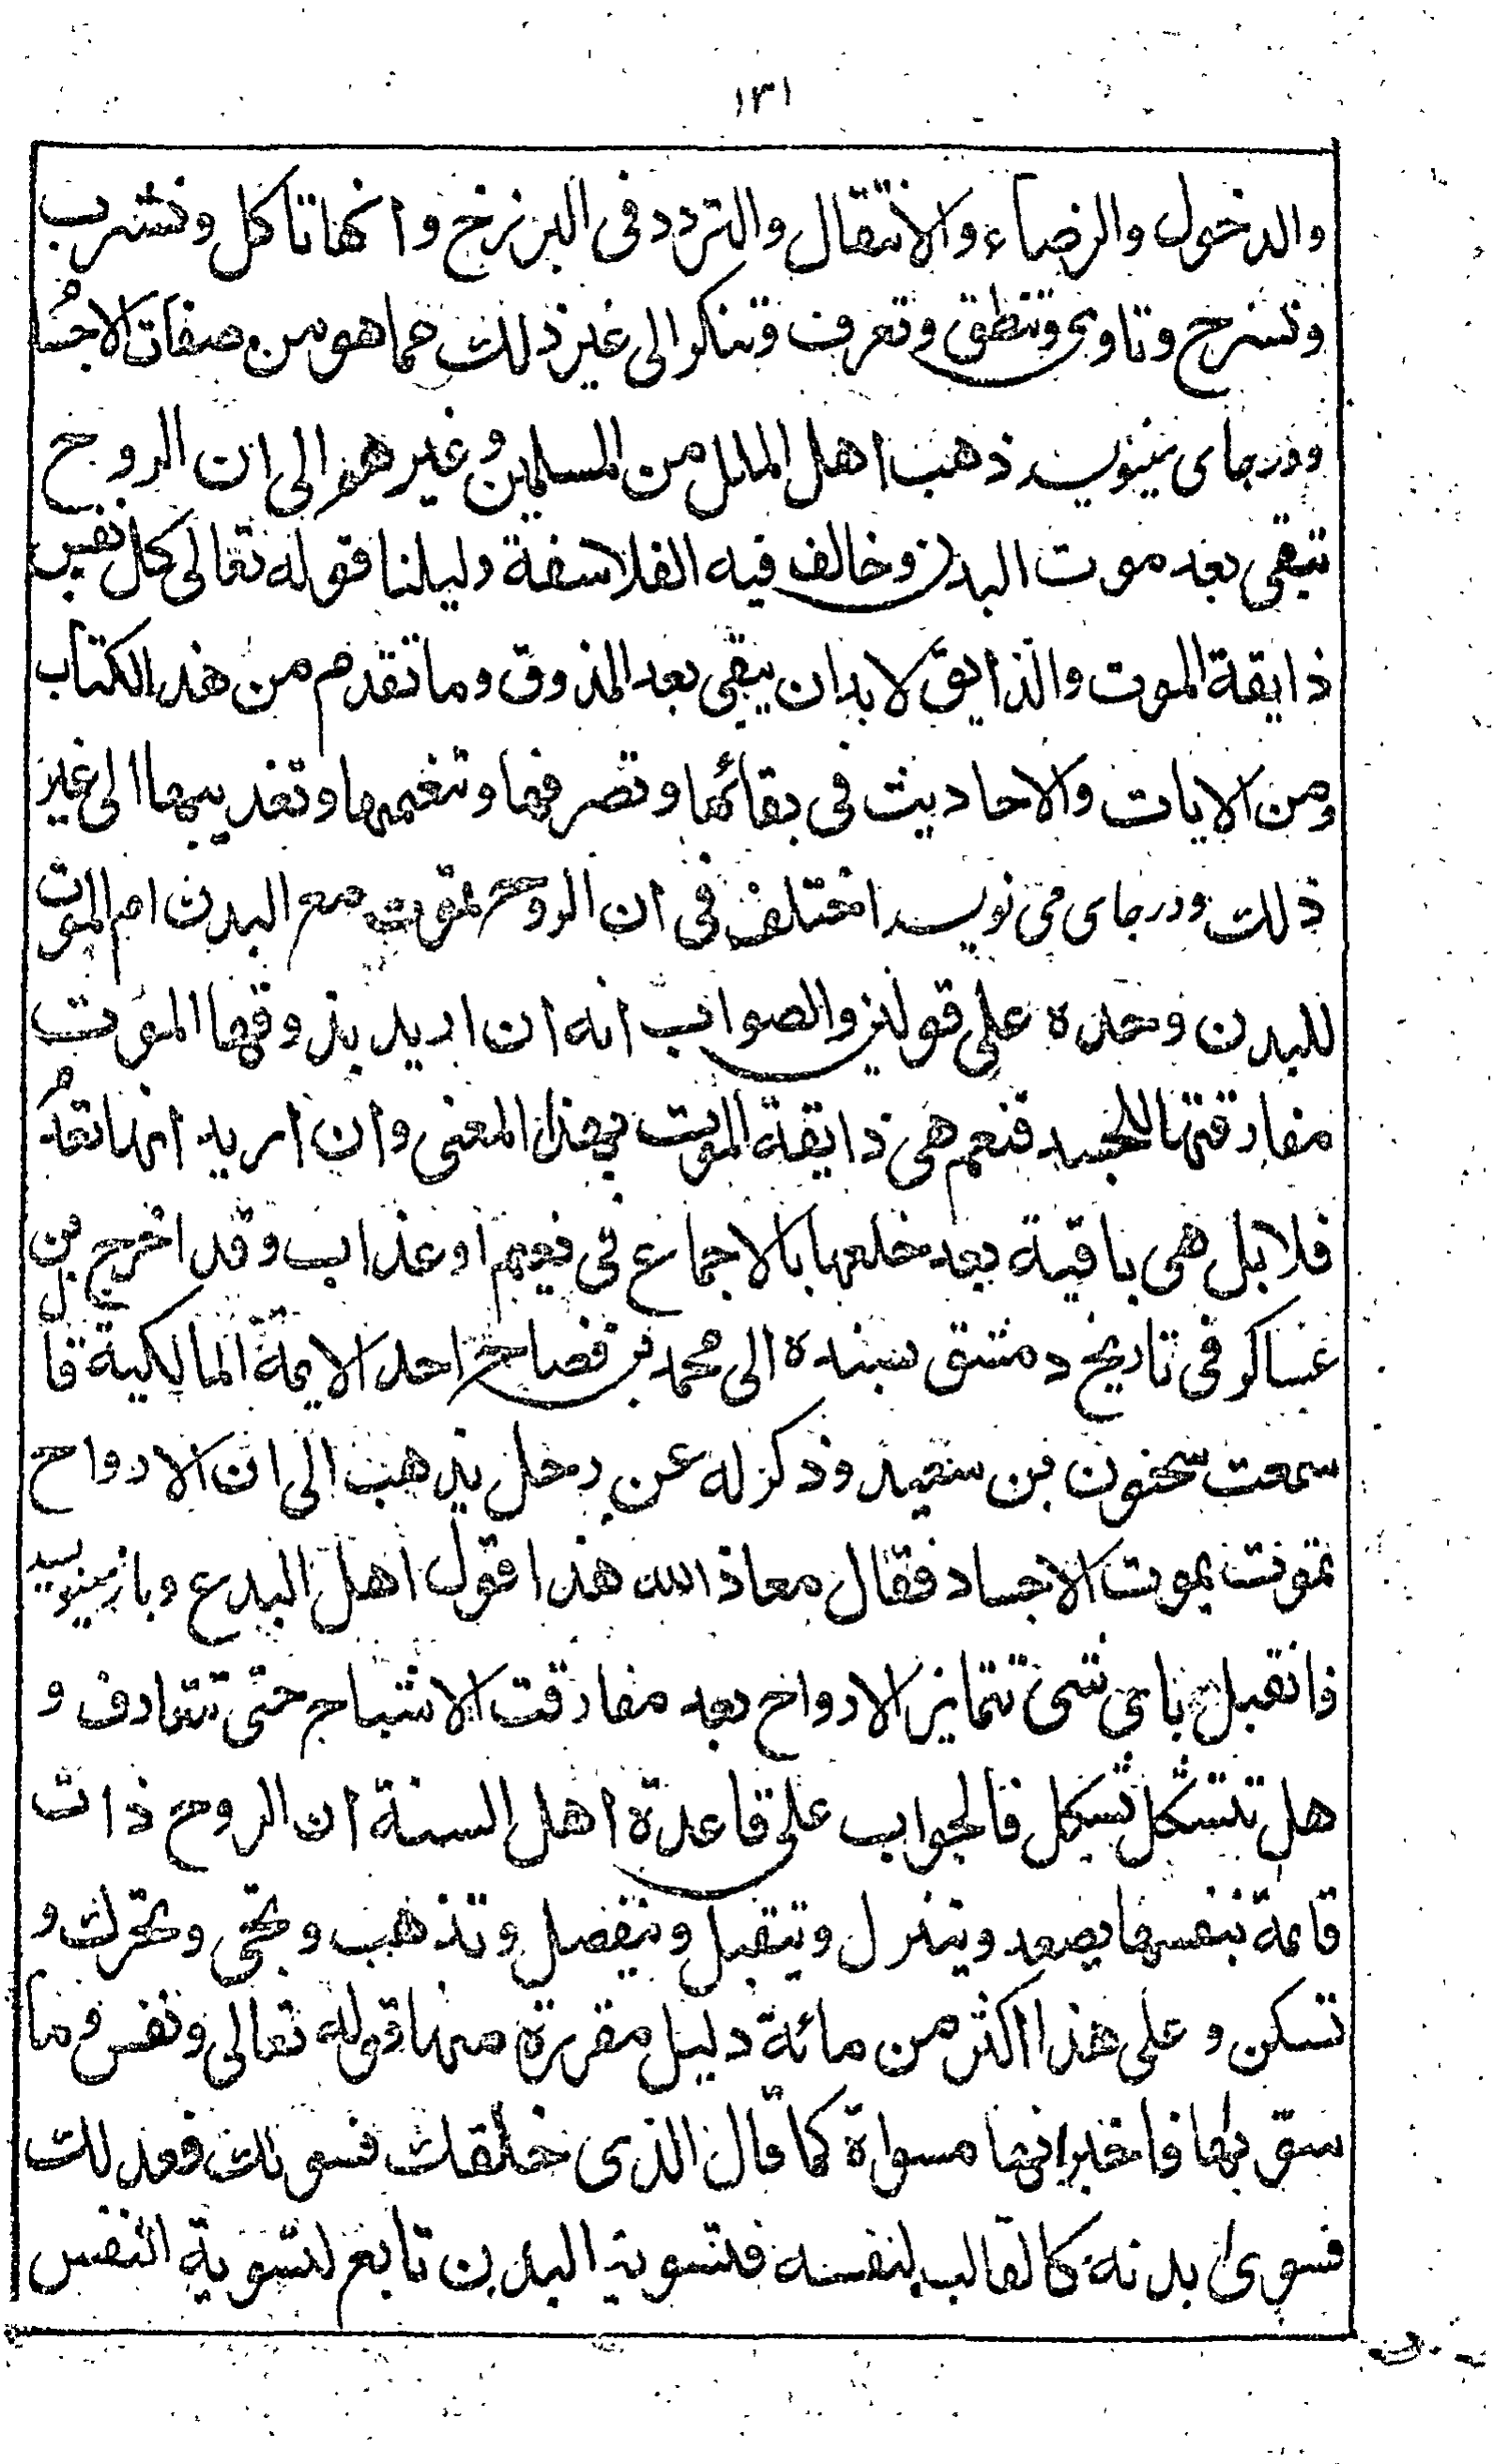 ١٣١
والدخول والرضاء والانتقال والتردد فى البرزخ وانها تاكل وتشرب
وتسرح وتاوى وتنطق وتعرف وتنكر الى غير ذلك مما هو من صفات الاجسام
ودرجاى مینویسد ذهب اهل الملل من المسلمين وغيرهم الى ان الروح
تبقى بعد موت البدن وخالف فيه الفلاسفة دليلنا قوله تعالى كل نفس
ذايقة الموت والذايق لابد ان يبقى بعد المذوق وما تقدم من هذ الكتاب
ومن الايات والاحاديث فى بقائها وتصرفها وتنعيمها وتعذيبها الى غير
ذلك ودرجاى می نویسد اختلف فى ان الروح تموت مع البدن ام الموت
للبدن وحده على قولين والصواب انه ان اريد بذوقها الموت
مفارقتها للجسد فنعم هى ذايقة الموت بهذا المعنى وان اريد انها تعدم
فلا بل هى باقية بعد خلعها بالاجماع فى نعيم او عذاب وقد اخرج بن
عساكر فى تاريخ دمشق بسنده الى محمد بن وضاح احد الايمة المالكية قال
سمعت سحنون بن سعيد وذكر له عن رجل يذهب الى ان الارواح
تموت بموت الاجساد فقال معاذ الله هذا قول اهل البدع وباز مینویسد
فان قيل باى شى تتمايز الارواح بعد مفارقت الاشباح حتى تتعارف و
هل تتشكل بشكل فالجواب على قاعدة اهل السنة ان الروح ذات
قائمة بنفسها يصعد وينزل ويتصل وينفصل وتذهب وتجى وتحرك و
تسكن وعلى هذا اكثر من مائة دليل مقررة منها قوله تعالى ونفس وما
سوىها فاخبر انها مسواة كما قال الذى خلقك فسوىك فعدلك
فسوى بدنه كالقالب لنفسه فتسوية البدن تابع لتسوية النفس